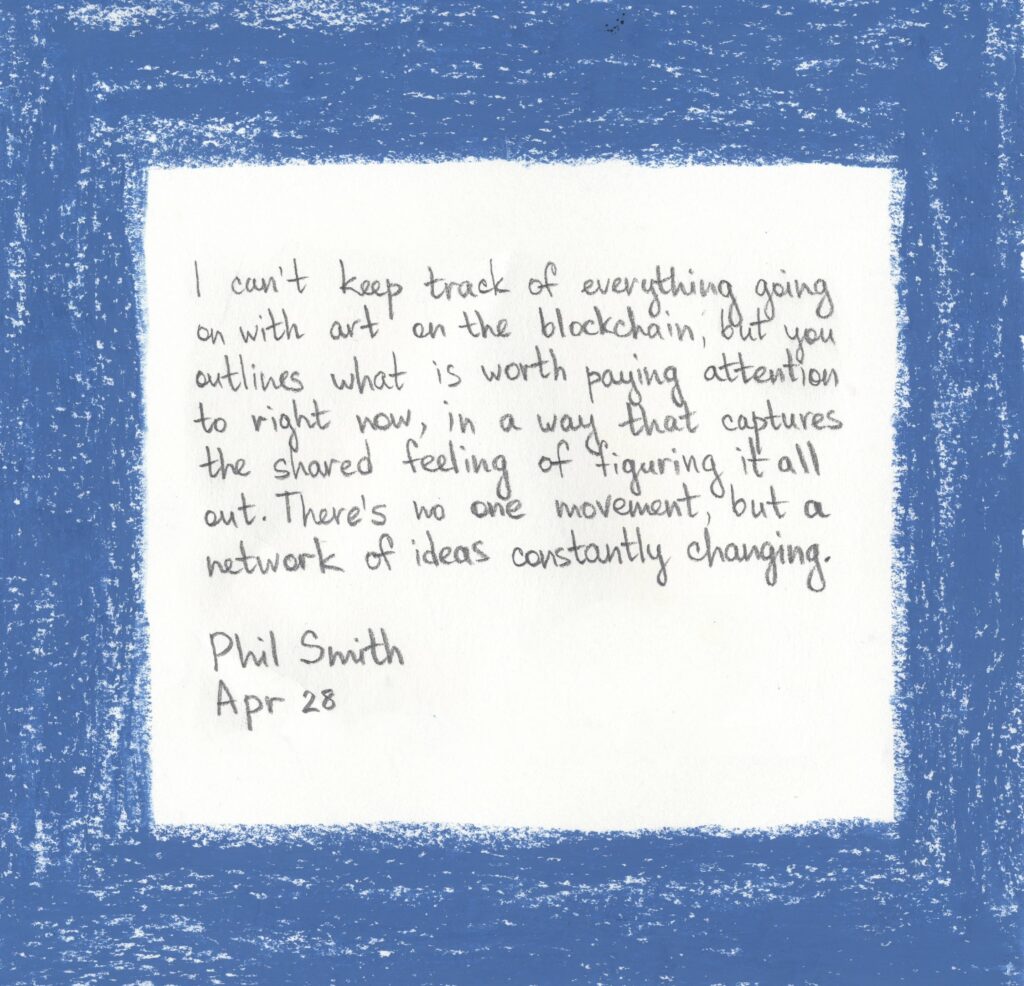 I can't keep track of everything going
on with art on the blockchain, but you
outlines what is worth paying attention
to right now, in a way that captures
the shared feeling of figuring it all
out. There's no one movement, but a
network of ideas constantly changing.
Phil Smith
Apr 28